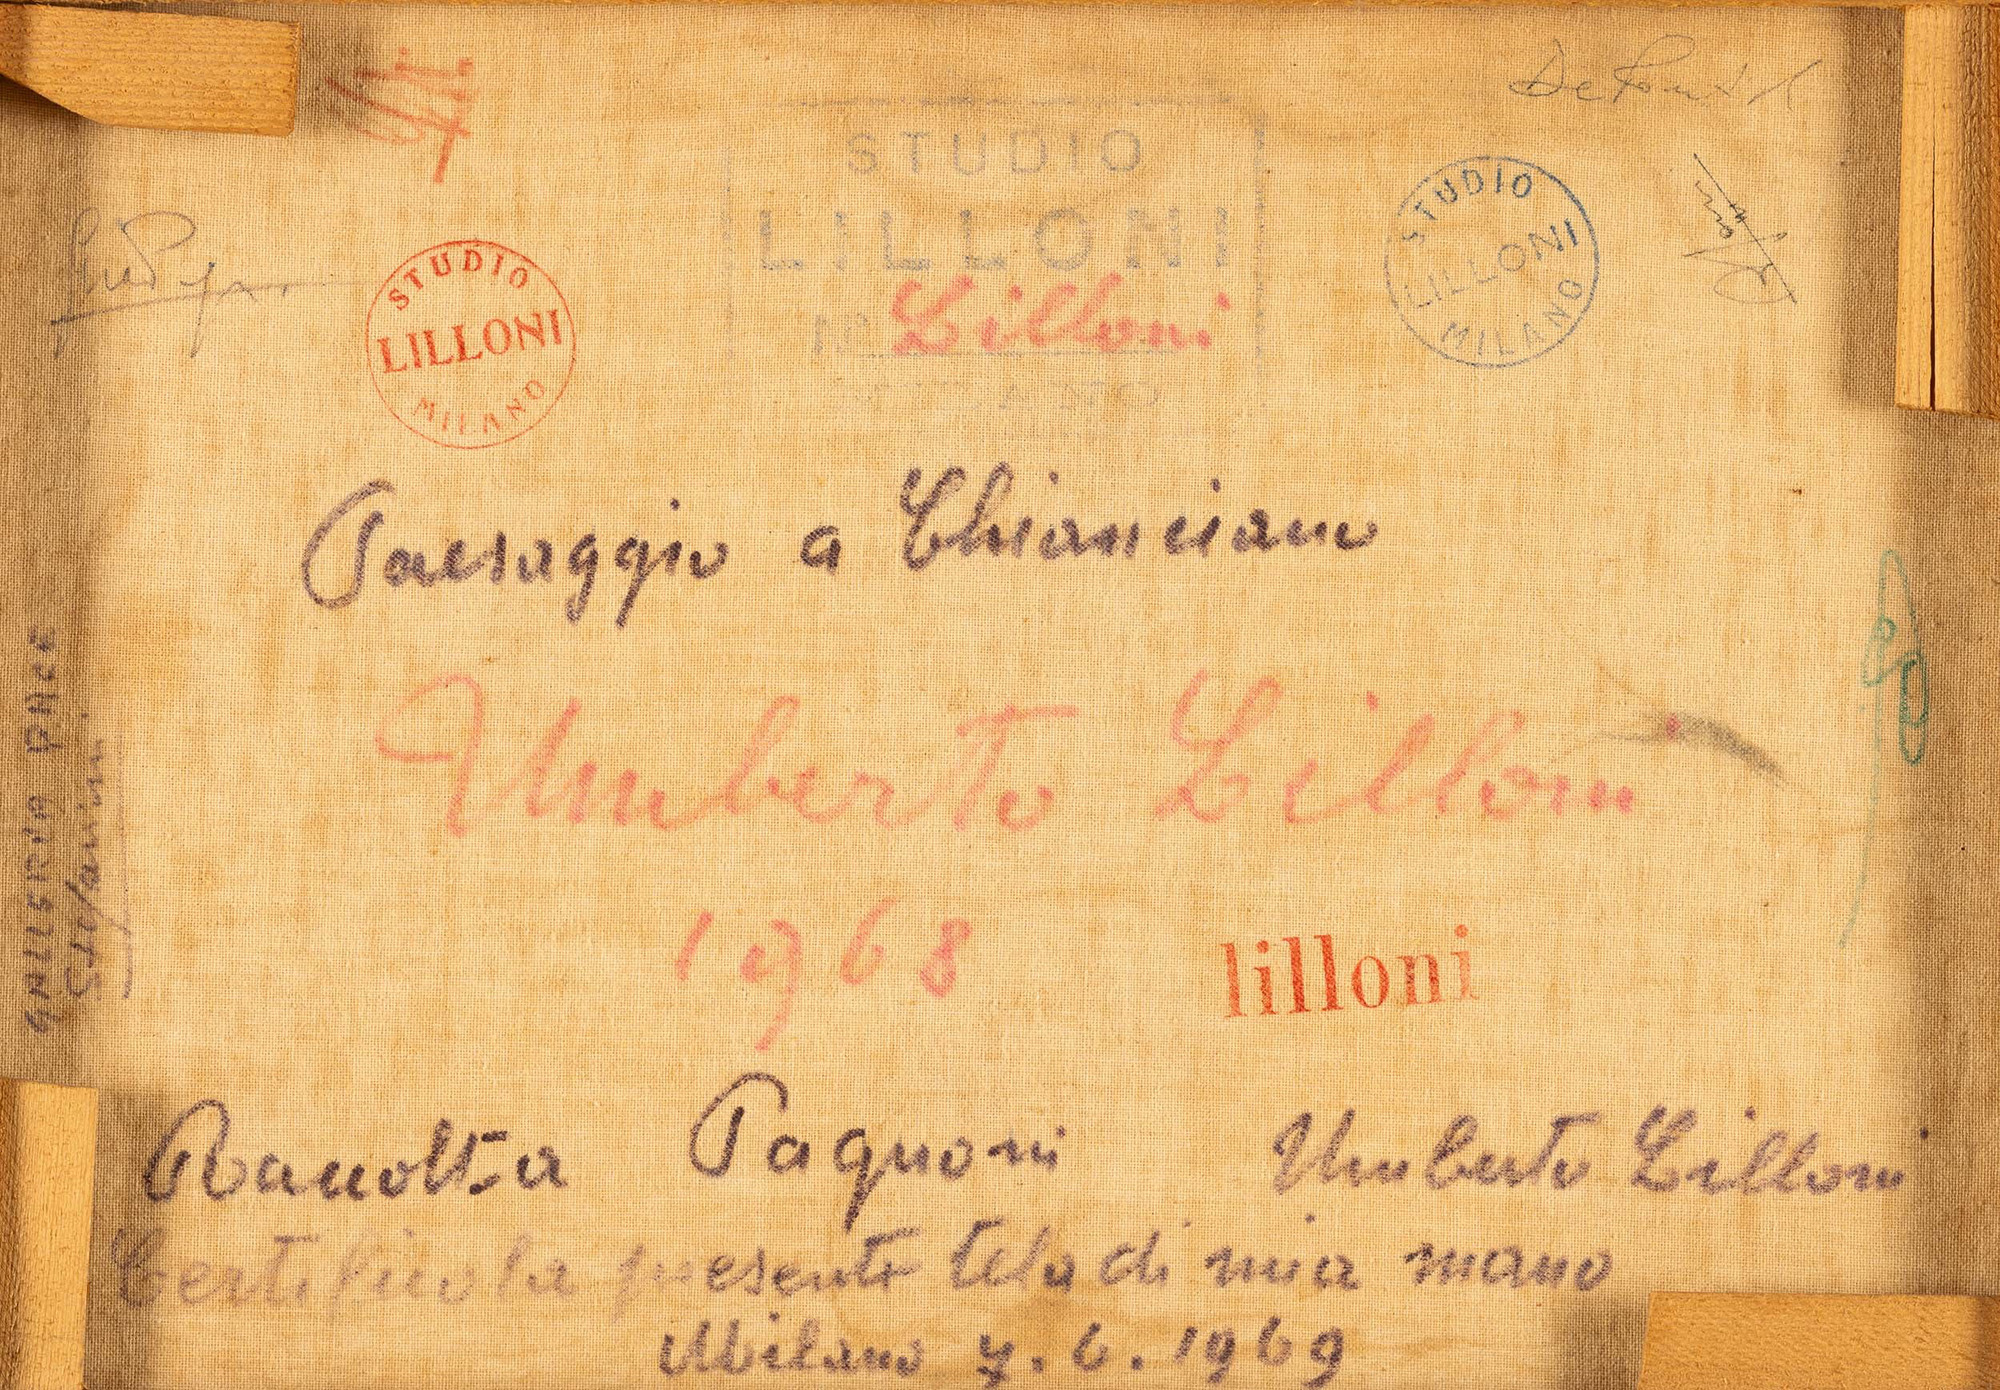 STUDIO
LILLONI
MILANO
STUDIO
LILLONI
Lilloni
MILANO
STUDIO
LILLONI
MILANO
Paesaggio a Chianciano
Umberto Lilloni
1968
lilloni
GALLERIA PACE
Raccolta Pagnoni Umberto Lilloni
Certifico la presente tela di mia mano
Milano 7.6.1969